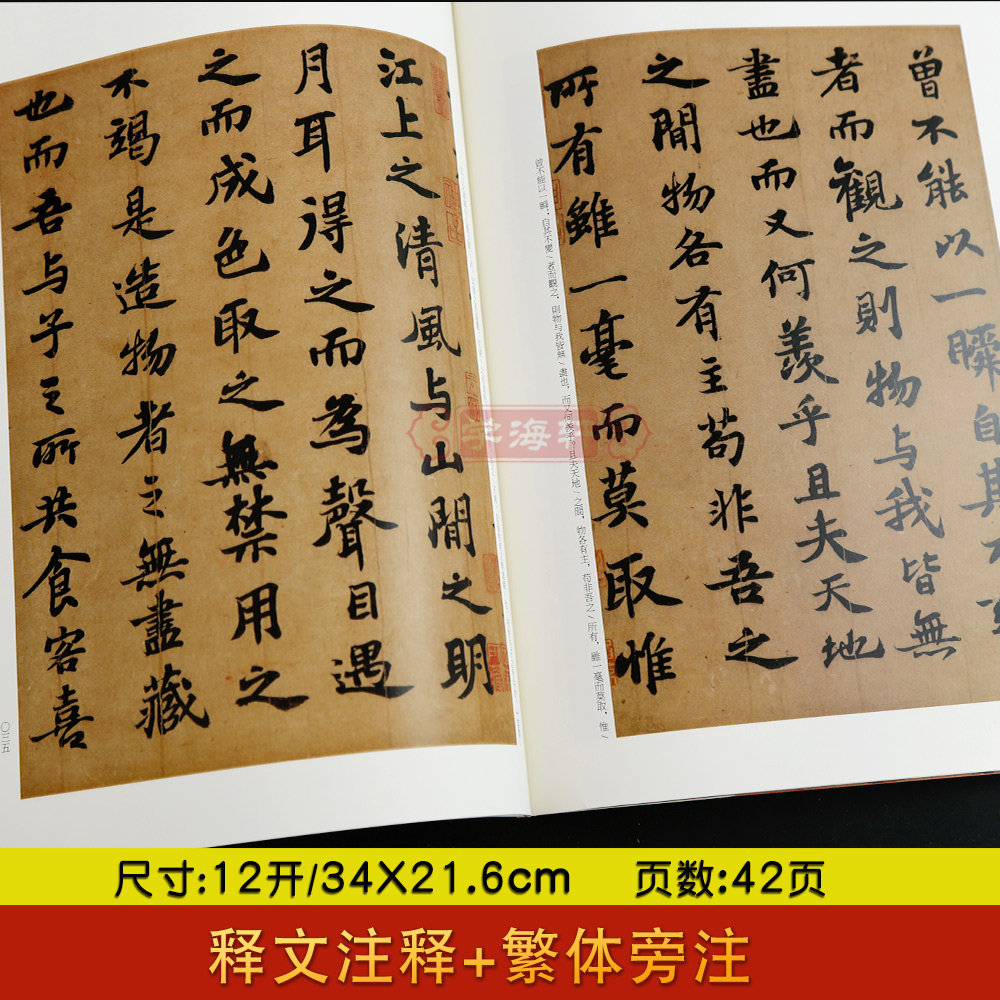 曾不能以一瞬自其不變
者而觀之則物与我皆無
盡也而又何羨乎且夫天地
之間物各有主苟非吾之
所有雖一毫而莫取惟
曾不能以一瞬；自其不變/者而觀之，則物与我皆無/盡也，而又何羨乎？且夫天地/之間，物各有主，苟非吾之/所有，雖一毫而莫取，惟/
江上之清風与山間之明
月耳得之而為聲目遇
之而成色取之無禁用之
不竭是造物者之無盡藏
也而吾与子之所共食客喜
〇三五
学海轩
尺寸:12开/34X21.6cm 页数:42页
释文注释+繁体旁注